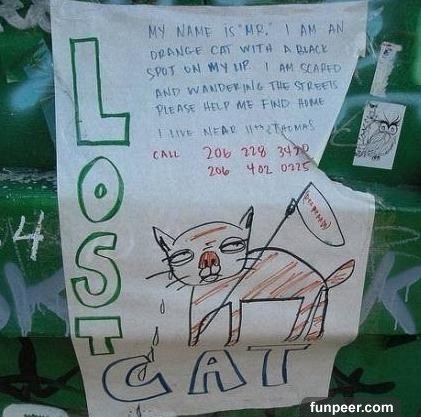 MY NAME IS "MR." I AM AN
ORANGE CAT WITH A BLACK
SPOT ON MY LIP. I AM SCARED
AND WANDERING THE STREETS
PLEASE HELP ME FIND HOME
I LIVE NEAR 11TH & THOMAS
CALL 206 228 3420
206 402 0225
LOST
CAT
4
funpeer.com